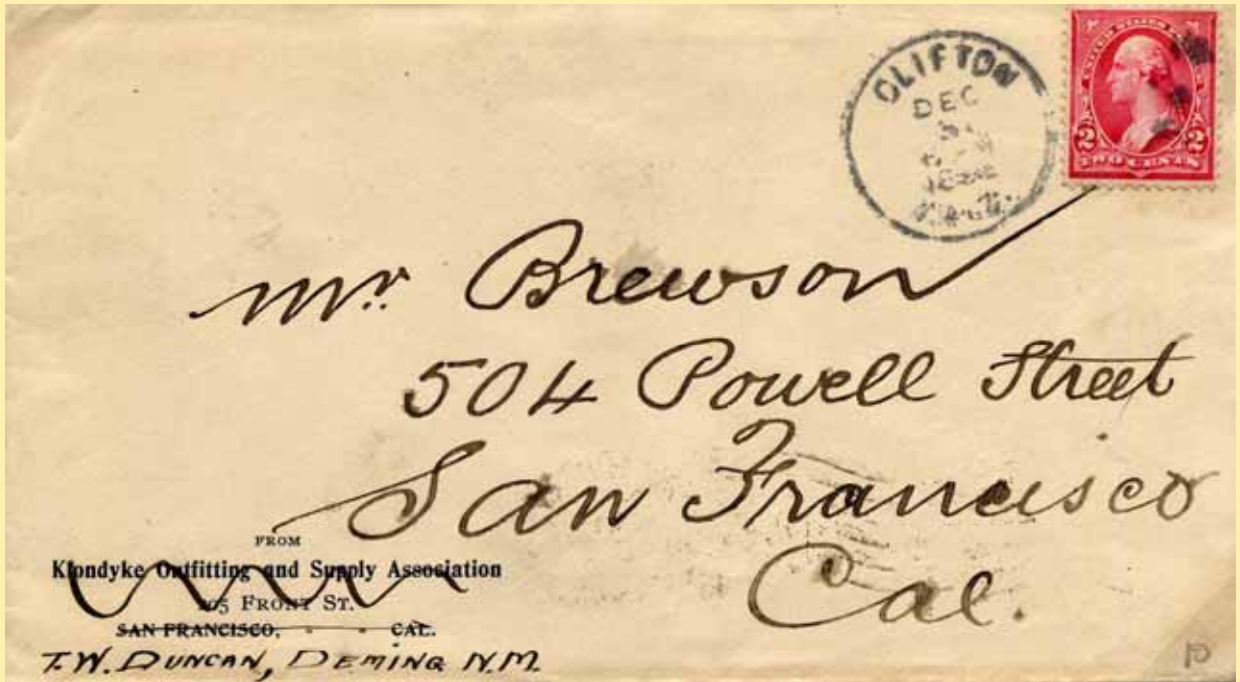 CLIFTON
DEC
UNITED STATES
2 2
TWO CENTS
Mr. Brewson
504 Powell Street
San Francisco
Cal.
FROM
Klondyke Outfitting and Supply Association
FRONT ST.
SAN FRANCISCO, - - CAL.
T.W. DUNCAN, DEMING N.M.